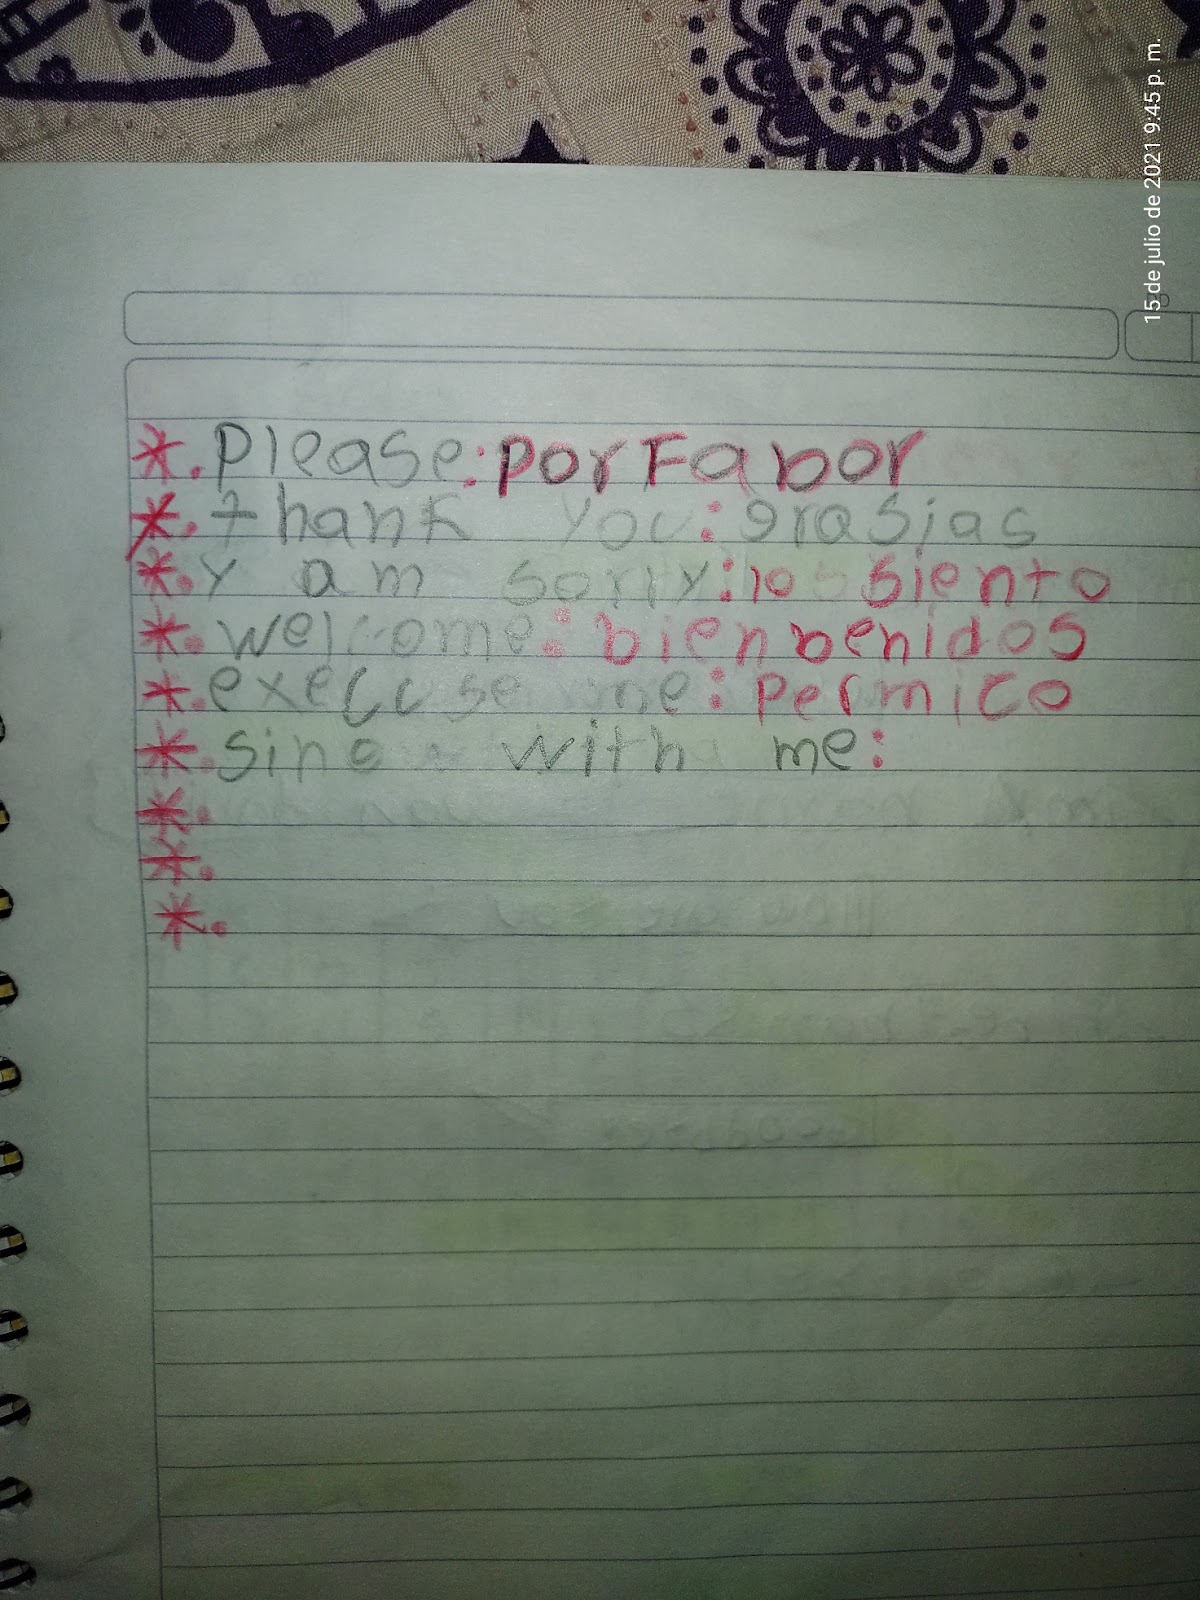 15 de julio de 2021 9:45 p. m.
*. Please: por Fabor
*. thank you: grasias
*. y am sorry: lo siento
*. welcome: bienbenidos
*. execcuse me: permico
*. sing with me:
*.
*.
*.